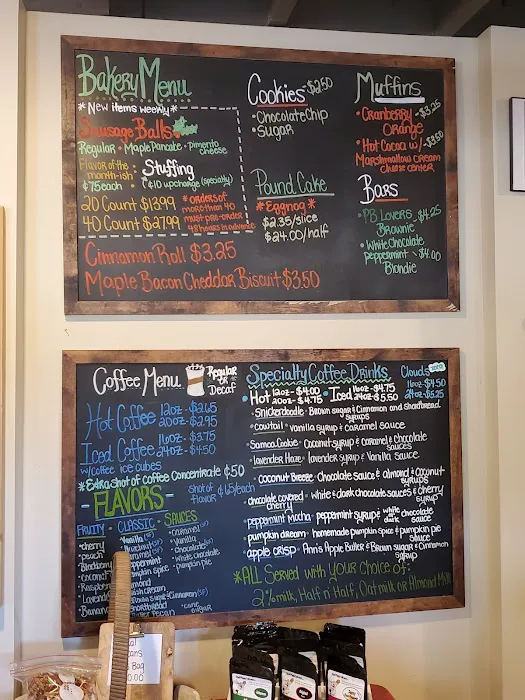 Bakery Menu
*New items weekly*
Sausage Balls
Regular • Maple Pancake • Pimento cheese
Flavor of the month-ish:
$.75 each
Stuffing
$10 upcharge (specialty)
20 Count $13.99
40 Count $27.99
*orders of more than 40 must pre-order 48 hours in advance
Cinnamon Roll $3.25
Maple Bacon Cheddar Biscuit $3.50
Cookies - $2.50
• Chocolate Chip
• Sugar
Pound Cake
*Eggnog*
$2.35/slice
$24.00/half
Muffins
• Cranberry Orange - $3.25
• Hot Cocoa w/ Marshmallow Cream cheese center - $3.50
Bars
• PB Lovers Brownie - $4.25
• White Chocolate Peppermint Blondie $4.00
Coffee Menu
Regular or Decaf
Hot Coffee 12oz - $2.65
20oz - $2.95
Iced Coffee 16oz - $3.75
24oz - $4.50
w/coffee ice cubes
*Extra shot of coffee concentrate $.50
- FLAVORS -
shot of flavor $.65/each
FRUITY - CLASSIC - SAUCES
• cherry
• peach
Blueberry
Coconut
Raspberry
Lavender
Banana
• Vanilla
Hazelnut
Caramel
Pumpkin Spice
Almond
Irish cream
Brown Sugar & Cinnamon (SF)
Shortbread
Butter Pecan
• Caramel
• Vanilla
• Chocolate
• White chocolate
• pumpkin pie
• cane sugar
Specialty Coffee Drinks
• Hot 12oz - $4.00
20oz - $4.75
• Iced 16oz - $4.75
24oz - $5.50
Clouds
16oz - $4.50
24oz - $5.25
• Snickerdoodle - Brown sugar & Cinnamon and Shortbread syrups
• cowtail - vanilla syrup & caramel sauce
• Samoa Cookie - Coconut syrup & caramel & chocolate sauces
• lavender Haze - lavender syrup & Vanilla Sauce
• coconut Breeze - Chocolate Sauce & almond & Coconut syrups
• chocolate covered cherry - white & dark chocolate sauces & cherry syrup
• peppermint Mocha - peppermint syrup & white or dark chocolate sauce
• pumpkin dream - homemade pumpkin spice & pumpkin pie sauce
• apple crisp - Ann's Apple Butter & Brown sugar & Cinnamon syrup
*ALL Served with your choice of:
2% milk, Half n' Half, Oatmilk or Almond Milk